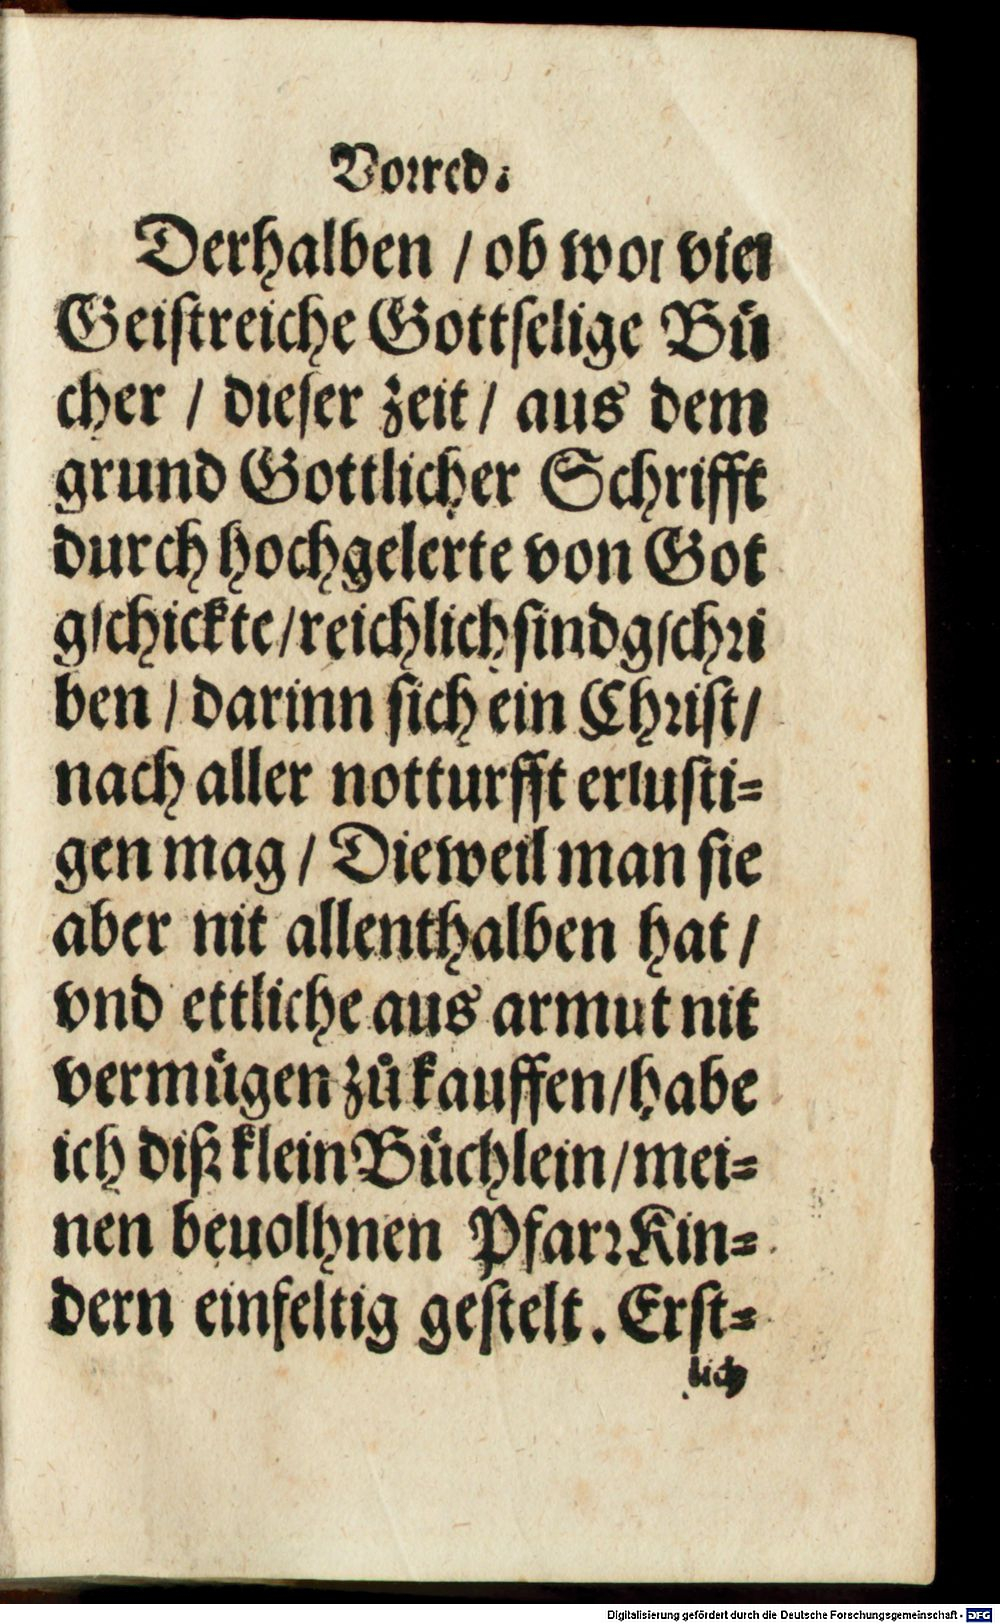 Vorred.
Derhalben / ob wol viel
Geistreiche Gottselige Bü
cher / dieser zeit / aus dem
grund Gottlicher Schrifft
durch hochgelerte von Got
gschickte / reichlich sind gschri
ben / darinn sich ein Christ /
nach aller notturfft erlusti=
gen mag / Dieweil man sie
aber nit allenthalben hat /
vnd ettliche aus armut nit
vermügen zů kauffen / habe
ich diß klein Büchlein / mei=
nen beuolhnen Pfarr Kin=
dern einfeltig gestelt. Erst=
lich
Digitalisierung gefördert durch die Deutsche Forschungsgemeinschaft - DFG